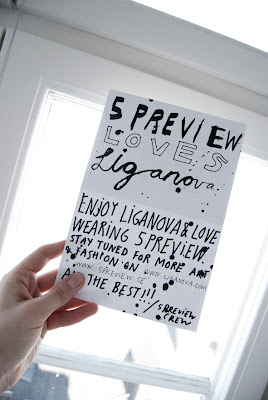 5 PREVIEW
LOVES
Liganova
ENJOY LIGANOVA & LOVE
WEARING 5PREVIEW.
STAY TUNED FOR MORE ART
FASHION ON
WWW.5PREVIEW.SE WWW.LIGANOVA.COM
ALL THE BEST!!!
/5PREVIEW
CREW